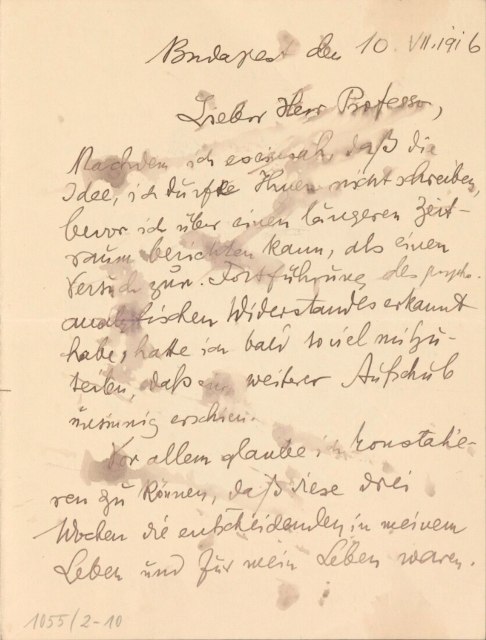 Budapest den 10. VII. 1916
Lieber Herr Professor,
Nachdem ich einsah, daß die
Idee, ich dürfte Ihnen nicht schreiben,
bevor ich über einen längeren Zeit-
raum berichten kann, als einen
Versuch zur Fortführung des psycho-
analytischen Widerstandes erkannt
habe, hatte ich bald soviel mitzu-
teilen, daß ein weiterer Aufschub
unsinnig erschien.
Vor allem glaube ich konstatie-
ren zu können, daß diese drei
Wochen die entscheidenden in meinem
Leben und für mein Leben waren.
1055/2-10